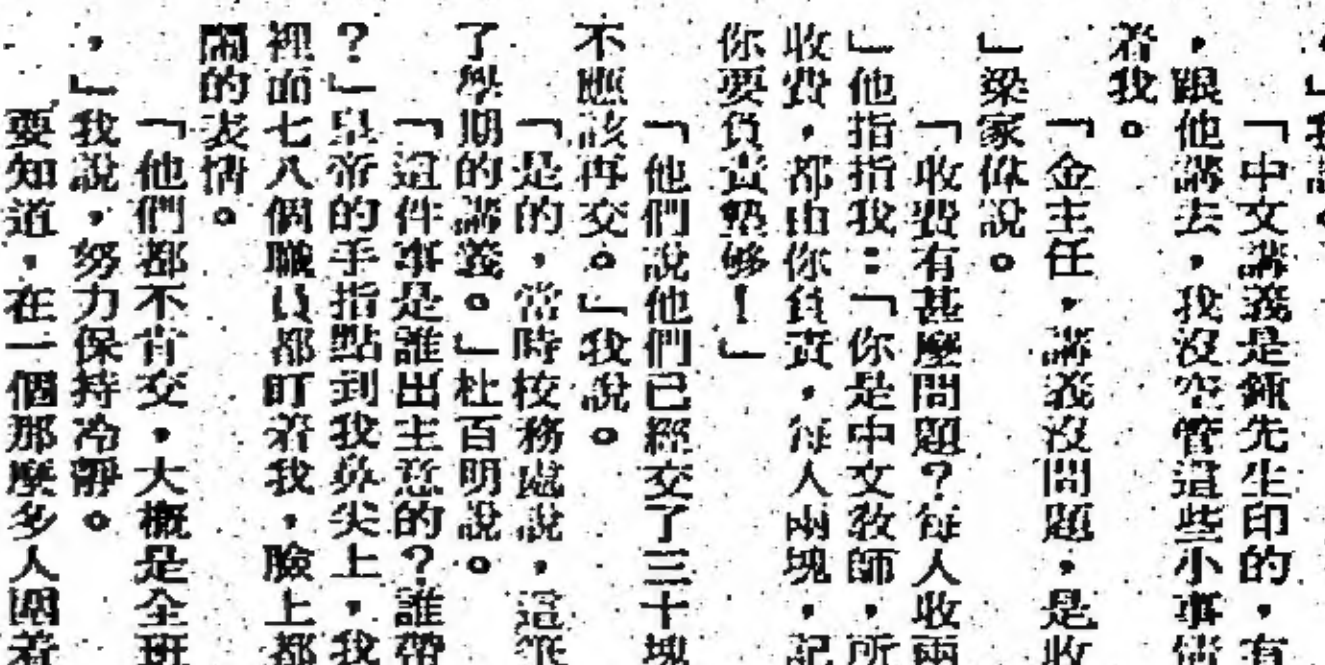 。」我說。
「中文講義是鍾先生印的，有
，跟他講去，我沒空管這些小事情
着我。
「金主任，講義沒問題，是收
」梁家偉說。
「收費有甚麼問題？每人收兩
」他指指我：「你是中文教師，所
收費，都由你負責，每人兩塊，記
你要負責墊够！」
「他們說他們已經交了三十塊
不應該再交。」我說。
「是的，當時校務處說，這筆
了學期的講義。」杜百明說。
「這件事是誰出主意的？誰帶
？」皇帝的手指點到我鼻尖上，我
裡面七八個職員都盯着我，臉上都
鬧的表情。
「他們都不肯交，大概是全班
，」我說，努力保持冷靜。
要知道，在一個那麼多人圍着